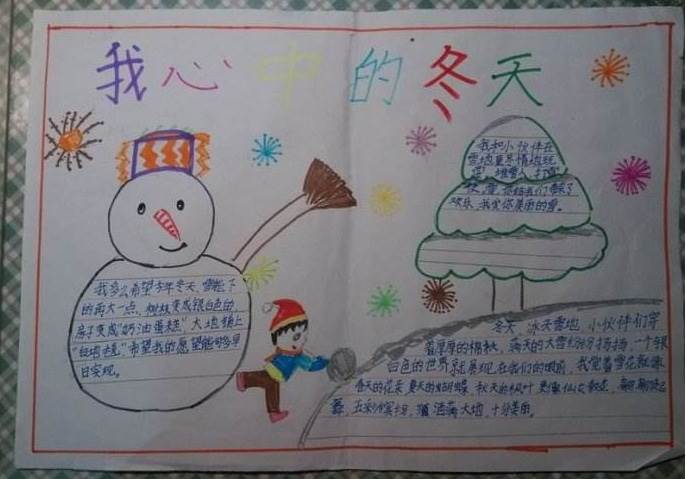 我心中的冬天
我和小伙伴在
雪地里尽情地玩
耍,堆雪人,打雪
给我们带来了
欢乐,我爱你美丽的雪。
我多么希望今年冬天,雪能下
的再大一点,树枝变成银白色的
房子变成“奶油蛋糕”大地铺上
“白地毯”希望我的愿望能够早
日实现。
冬天,冰天雪地,小伙伴们穿
着厚厚的棉袄,满天的大雪纷纷扬扬,一个银
白色的世界就展现在我们的眼前,我觉着雪花就像
春天的花朵,夏天的蝴蝶,秋天的枫叶,
舞,五彩缤纷,洒满大地,十分美丽。